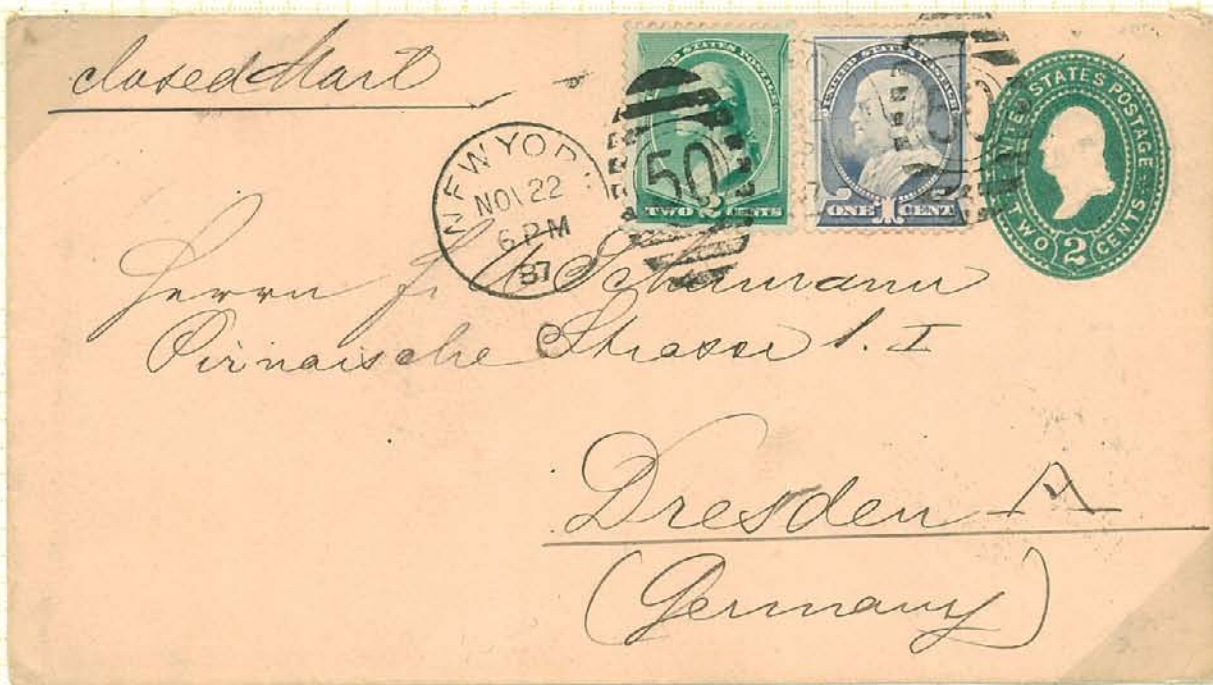 closed Mail
UNITED STATES POSTAGE
TWO 2 CENTS
UNITED STATES POSTAGE
ONE 1 CENT
UNITED STATES POSTAGE
TWO 2 CENTS
NEW YORK
NOV 22
6 PM
87
50
Herrn F. Schumann
Pirnaische Strasse 1. I
Dresden A
(Germany)